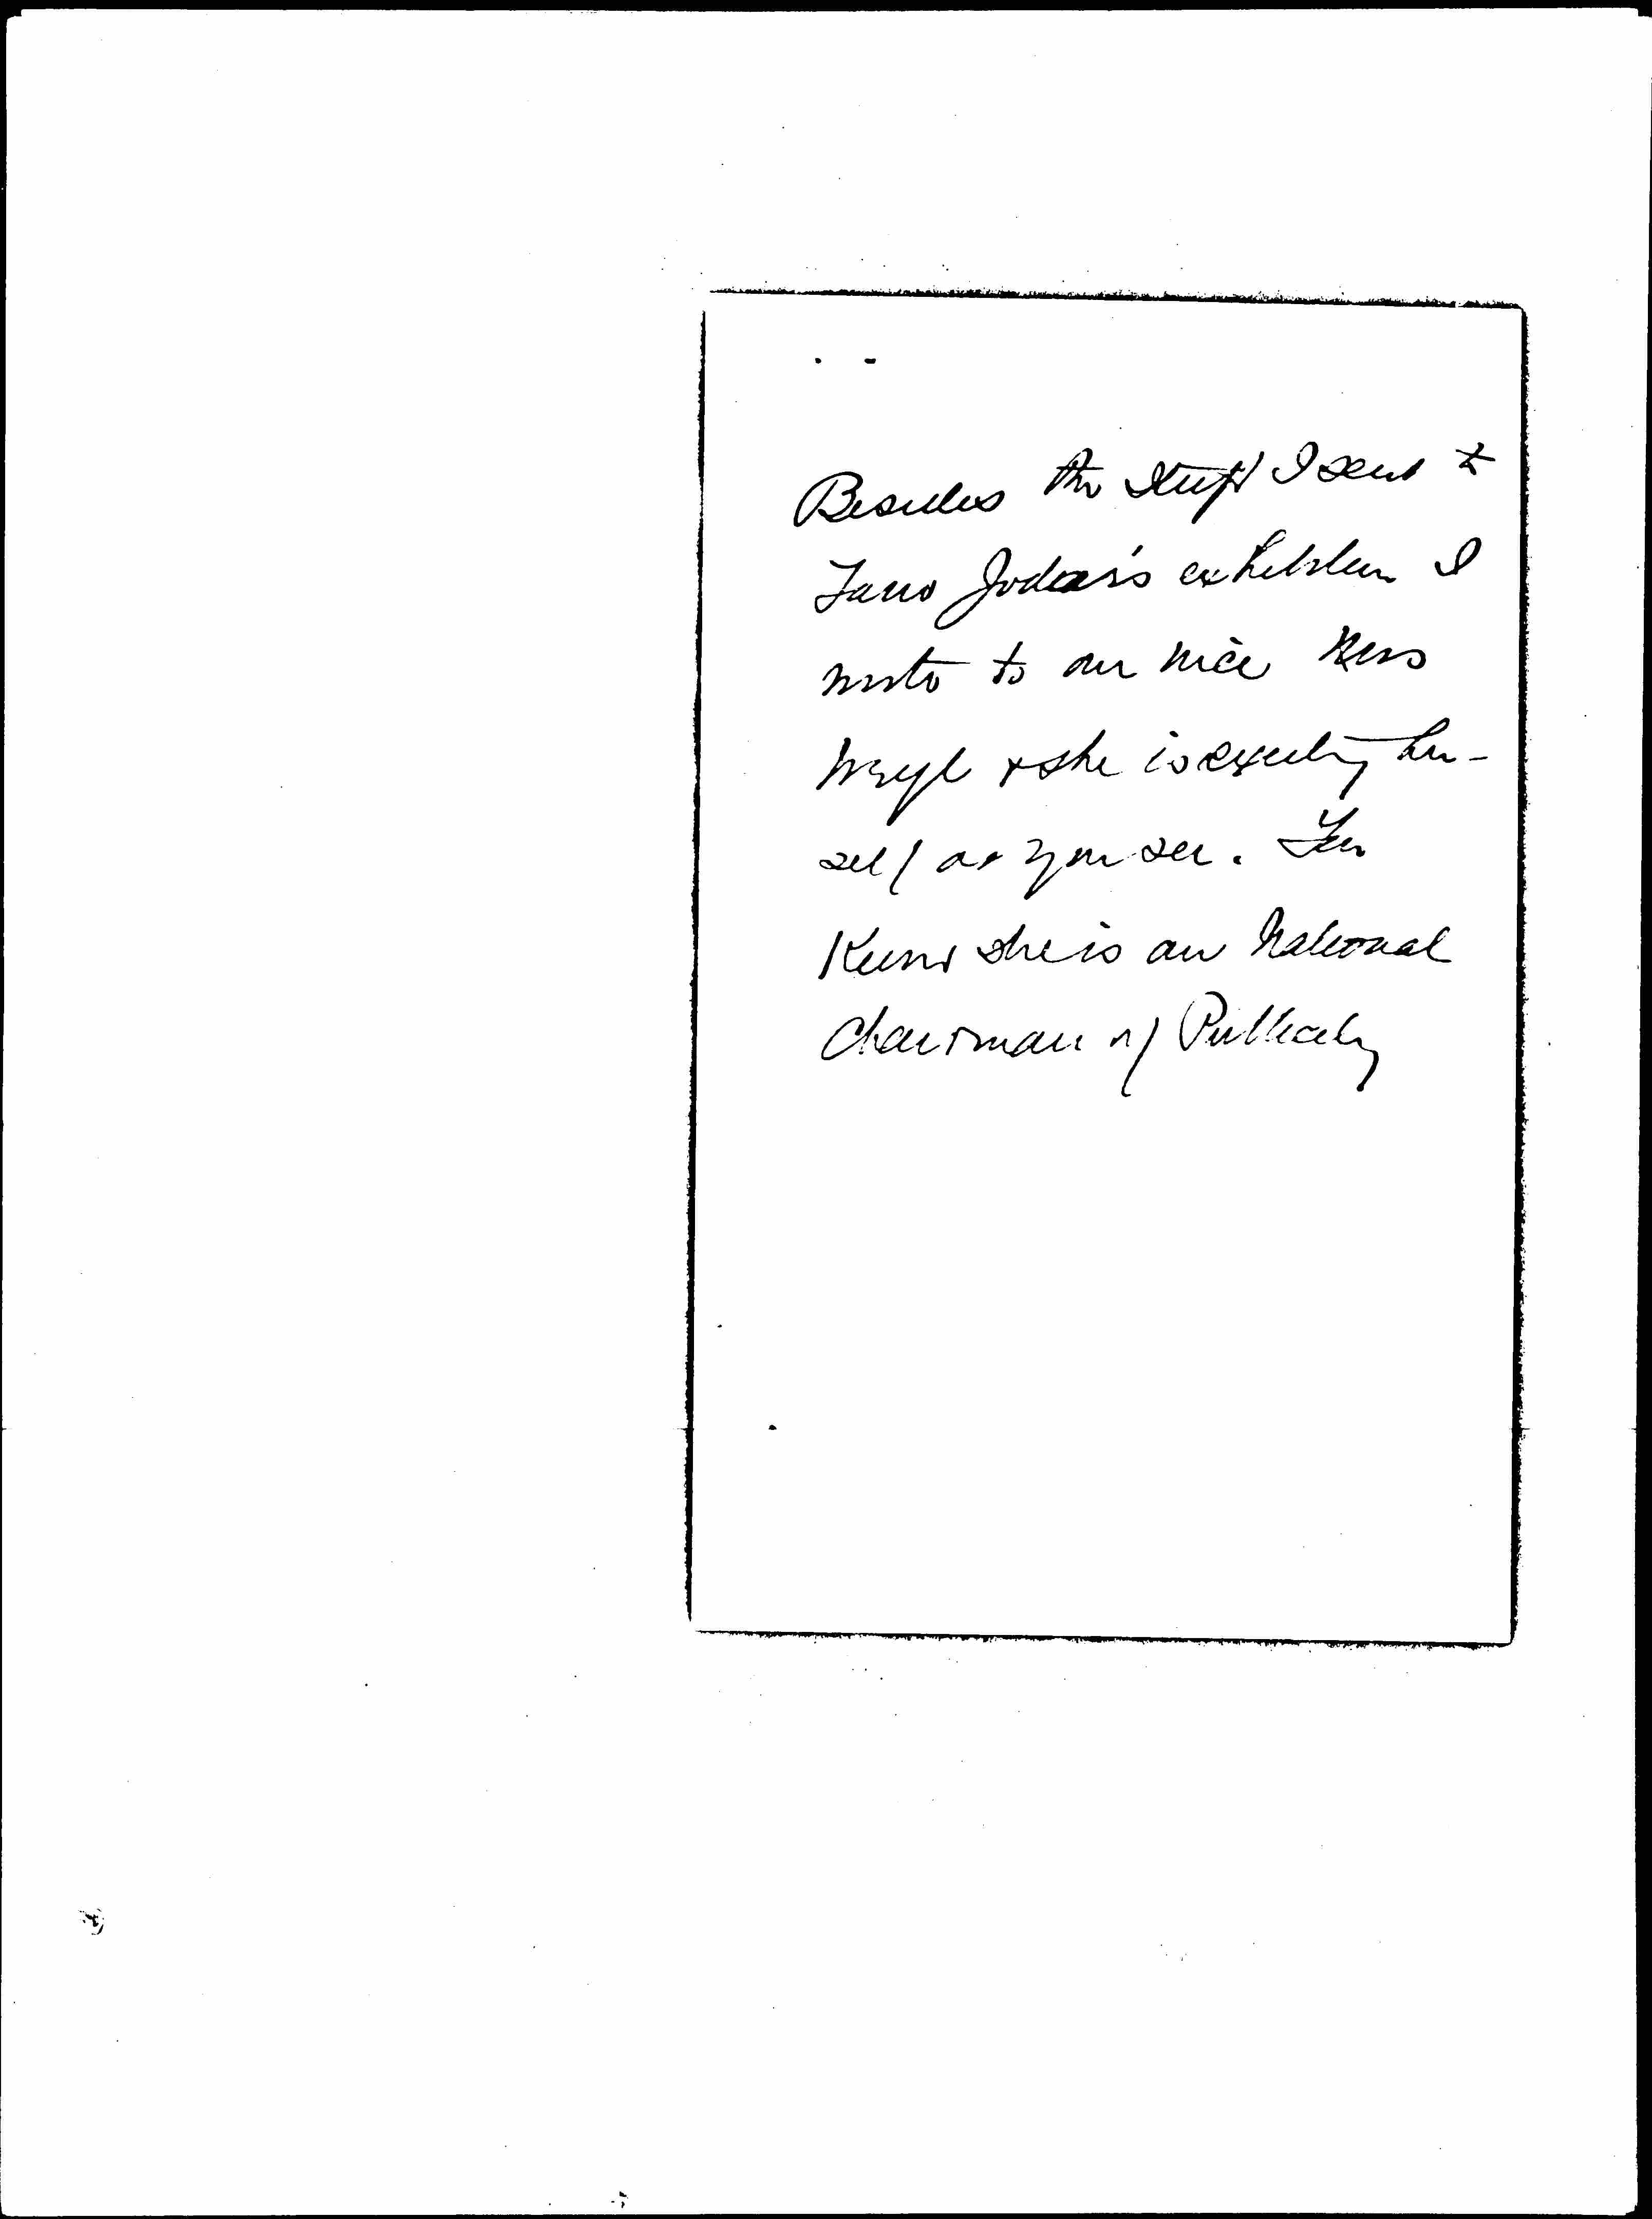 Besides the stuff I sent to
Jodar's exhibition I
wrote to our nice
& she is exerting her-
self as you see. You
Know she is our National
Chairman of Publicity